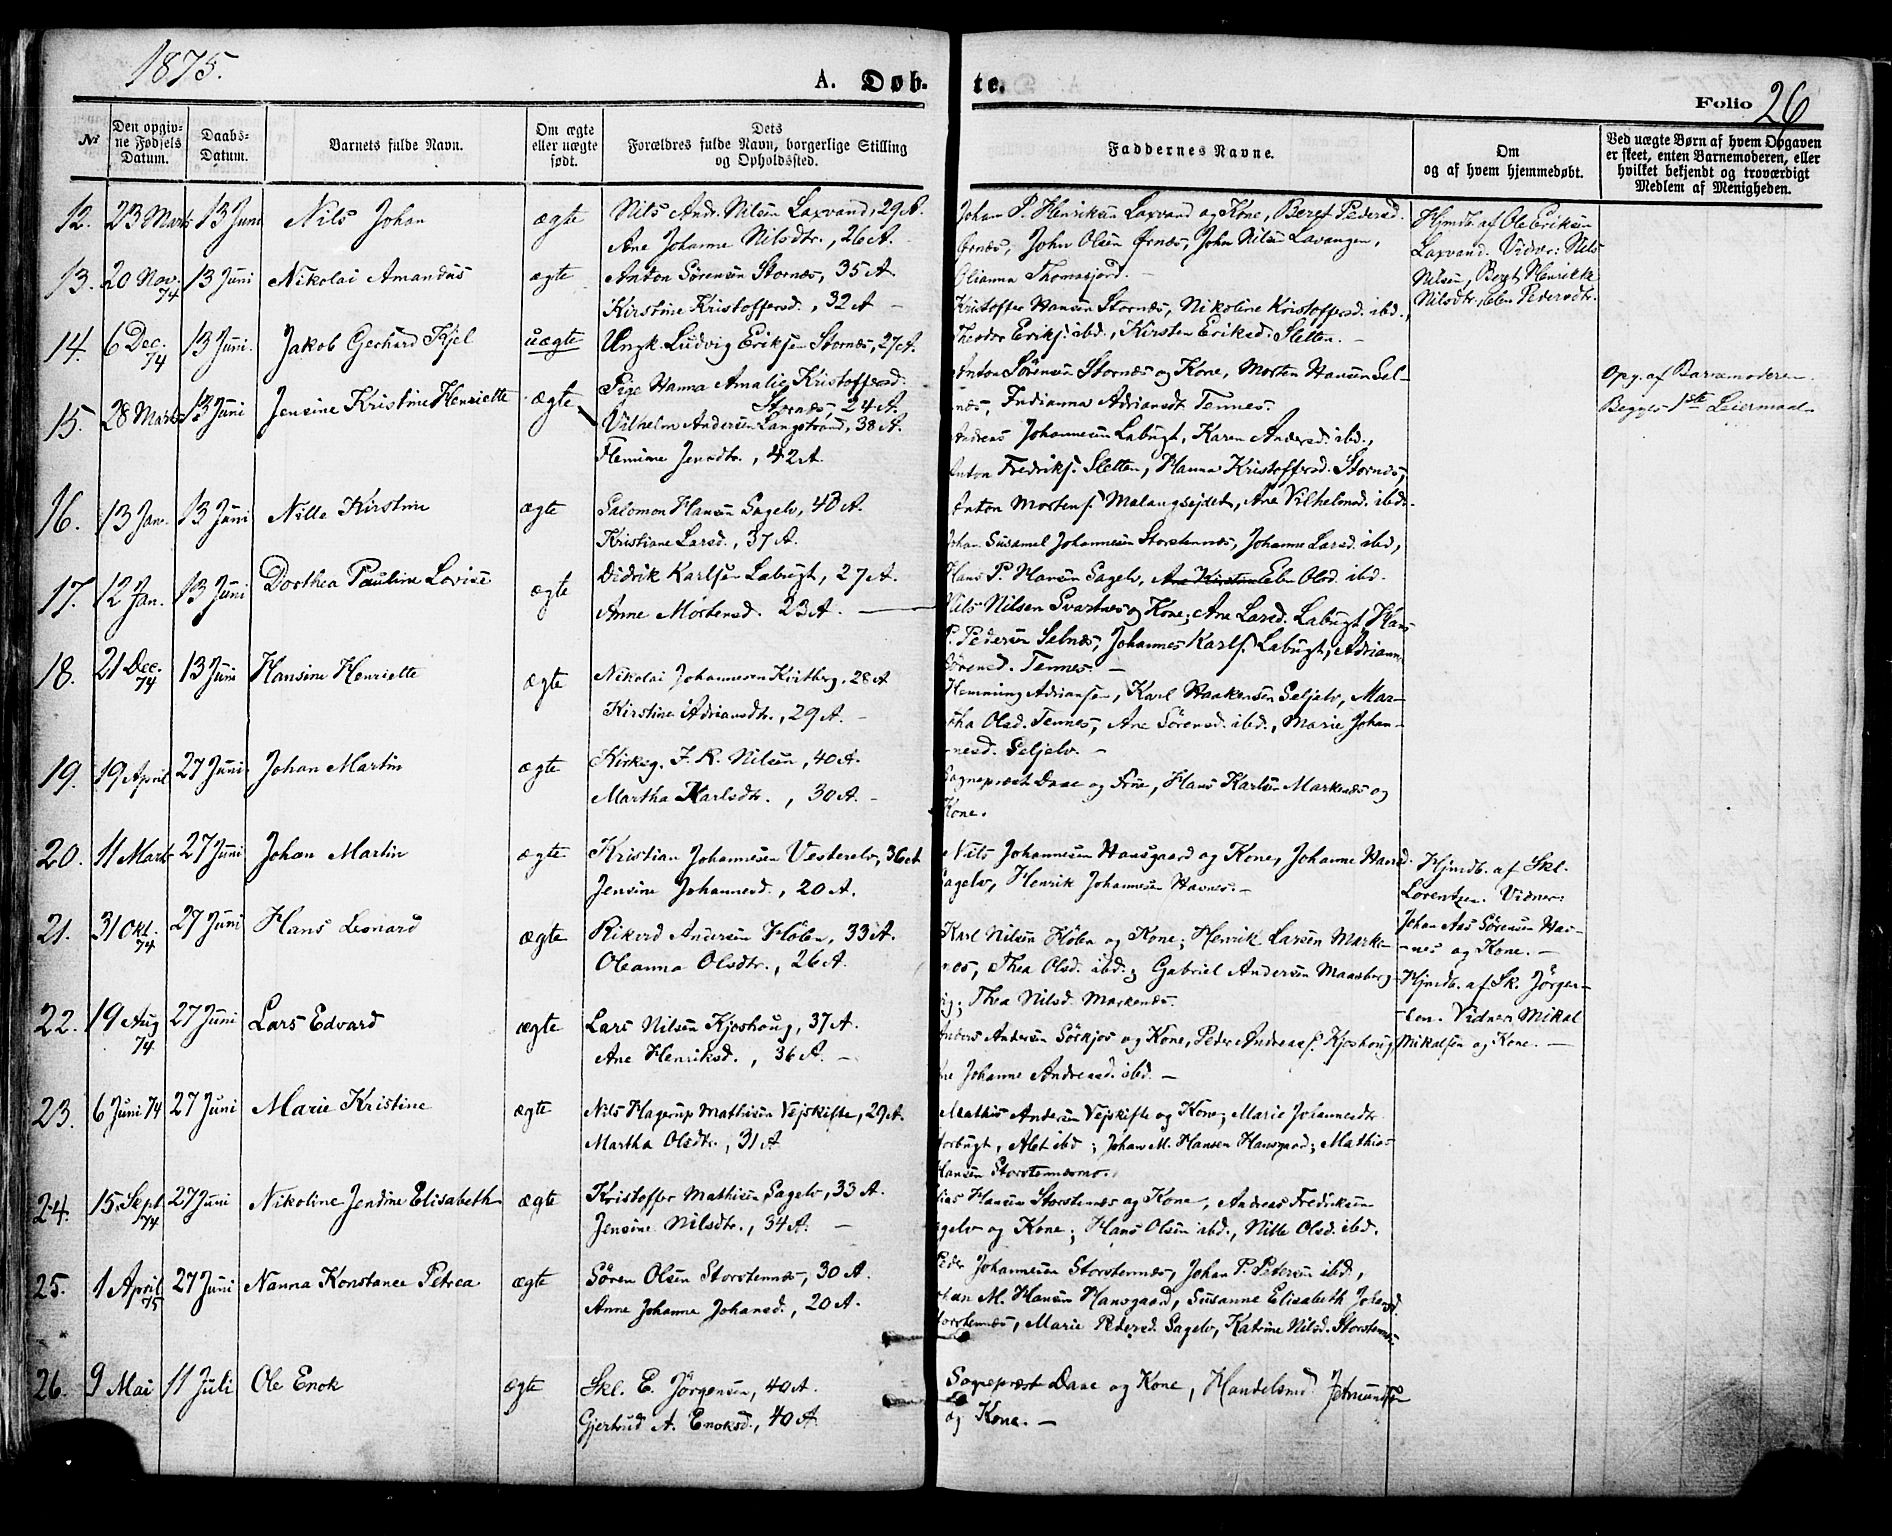 1875.
A. Døb- te.
Folio 26
№
Den opgiv-
ne Fødsels
Datum.
Daabs-
Datum.
Barnets fulde Navn.
Om ægte
eller uægte
født.
Dets
Forældres fulde Navn, borgerlige Stilling
og Opholdssted.
Faddernes Navne.
Om
og af hvem hjemmedøbt.
Ved uægte Børn af hvem Opgaven
er skeet, enten Barnemoderen, eller
hvilket bekjendt og troværdigt
Medlem af Menigheden.
12. 23 Marts 13 Juni Nils Johan ægte
Nils Andr. Nilsen Laxvand, 29 A.
Ane Johanne Nilsdtr., 26 A.
Johan P. Henriksen Laxvand og Kone, Beret Pedersd.
Ørnæs, John Olsen Ørnæs, John Nilsen Lavangen,
Olianna Thomasjord.
Hjmdb. af Ole Eriksen
Laxvand. Vidner: Nils
Nilsen, Bergt. Henrikke
Nilsdtr., Elen Pedersdtr.
13. 20 Nov. 74 13 Juni Nikolai Amandus ægte
Anton Sørensen Stornæs, 35 A.
Kirstine Kristoffersd., 32 A. —
Kristoffer Hansen Stornæs, Nikoline Kristoffersd. ibd.,
Theodor Eriks. ibd., Kirsten Eriksd. Sletten. —
14. 6 Dec. 74 13 Juni. Jakob Gerhard Kjel uægte
Ungk. Ludvig Eriksen Stornæs, 27 A.
Pige Hanna Amalie Kristoffersd.
Stornæs, 24 A.
Anton Sørensen Stornæs og Kone, Morten Hansen Sel-
næs, Indianna Adriansdt. Tennes.
Opg. af Barnemoderen.
Begges 1ste Leiermaal.
15. 28 Marts 13 Juni Jensine Kristine Henriette ægte
Vilhelm Andersen Langstrand, 38 A.
Flemine Jensdtr., 42 A.
Andreas Johannesen Labugt, Karen Andersd. ibd.,
Anton Fredriks. Sletten, Hanna Kristoffersd. Stornæs,
Anton Mortens. Malangsejdet, Ane Vilhelmsd. ibd.
16. 13 Jan. 13 Juni Nille Kirstine ægte
Salomon Hansen Sagelv, 40 A.
Kristiane Larsd., 37 A.
Johan Susamel Johannesen Storstennæs, Johanne Larsd. ibd.,
Hans P. Hansen Sagelv, Ane Kirstine Elen Olsd. ibd.
17. 12 Jan. 13 Juni Dorthea Pauline Lovise ægte
Didrik Karlsen Labugt, 27 A.
Anne Mortensd. 23 A. —
Nils Nilsen Svartnæs og Kone, Ane Larsd. Labugt, Hans
P. Pedersen Selnæs, Johannes Karls. Labugt, Adrianne
Sørensd. Tennes. —
18. 21 Dec. 74 13 Juni Hansine Henriette ægte
Nikolai Johannesen Kvitberg, 28 A
Kirstine Adriansdtr., 29 A. —
Hemming Adriansen, Karl Haakensen Seljelv, Mar-
tha Olsd. Tennes, Ane Sørensd. ibd., Marie Johan-
nesd. Seljelv. —
19. 19 April 27 Juni Johan Martin ægte
Kirkesg. J. R. Nilsen, 40 A.
Martha Karlsdtr., 30 A. —
Sognepræst Daae og Frue, Hans Karlsen Markenæs og
Kone.
20. 11 Marts 27 Juni Johan Martin ægte
Kristian Johannesen Vesterelv, 36 A
Jensine Johannesd., 20 A.
Nils Johannesen Hansgaard og Kone, Johanne Hansd.
Sagelv, Henrik Johannesen Havnes. —
Hjmdb. af Skl.
Lorentzen. Vidner:
Johan Aas Sørensen Hav-
nes og Kone. —
21. 31 Okt. 74 27 Juni Hans Leonard ægte
Rikerd Andersen Holen, 33 A.
Oleanna Olsdtr., 26 A.
Karl Nilsen Holen og Kone; Henrik Larsen Marke-
næs, Thea Olsd. ibd.; Gabriel Andersen Maasberg-
vig; Thea Nilsd. Markenæs.
Hjmdb. af Sk. Jørgen-
sen. Vidner Mikal
Mikalsen og Kone. —
22. 19 Aug 74 27 Juni Lars Edvard ægte
Lars Nilsen Kjoshoug, 37 A.
Ane Henriksd., 36 A. —
Anders Andersen Sørkjos og Kone, Peder Andreas. Kjoshoug,
Ane Johanne Andreasd. ibd. —
23. 6 Juni 74 27 Juni Marie Kristine ægte
Nils Hagerup Mathisen Vejskifte, 29 A.
Martha Olsdtr., 31 A
Mathis Andersen Vejskifte og Kone; Marie Johannesdtr.
Norbugt, Alet ibd; Johan M. Hansen Hansgaard; Mathias
Hansen Storstennæsmo.
24. 15. Sept 74 27 Juni Nikoline Jendine Elisabeth ægte
Kristoffer Mathisen Sagelv, 33 A.
Jensine Nilsdtr., 34 A. —
Hansen Storstennæs og Kone, Andreas Fredriksen
Sagelv og Kone; Hans Olsen ibd., Nille Olsd. ibd.
25. 1 April 75 27 Juni Nanna Konstance Petrea ægte
Søren Olsen Storstennæs, 30 A.
Anne Johanne Johansd., 20 A.
Peder Johannesen Storstennæs, Johan P. Petersen ibd.,
Johan M. Hansen Hansgaard, Susanne Elisabeth Johansd.
Storstennæs, Marie Pedersd. Sagelv, Katrine Nilsd. Storstennæs
26. 9 Mai 11 Juli Ole Enok ægte
Skl. E. Jørgensen, 40 A.
Gjertrud A. Enoksd., 40 A.
Sognepræst Daae og Kone, Handelsmd.
og Kone. —